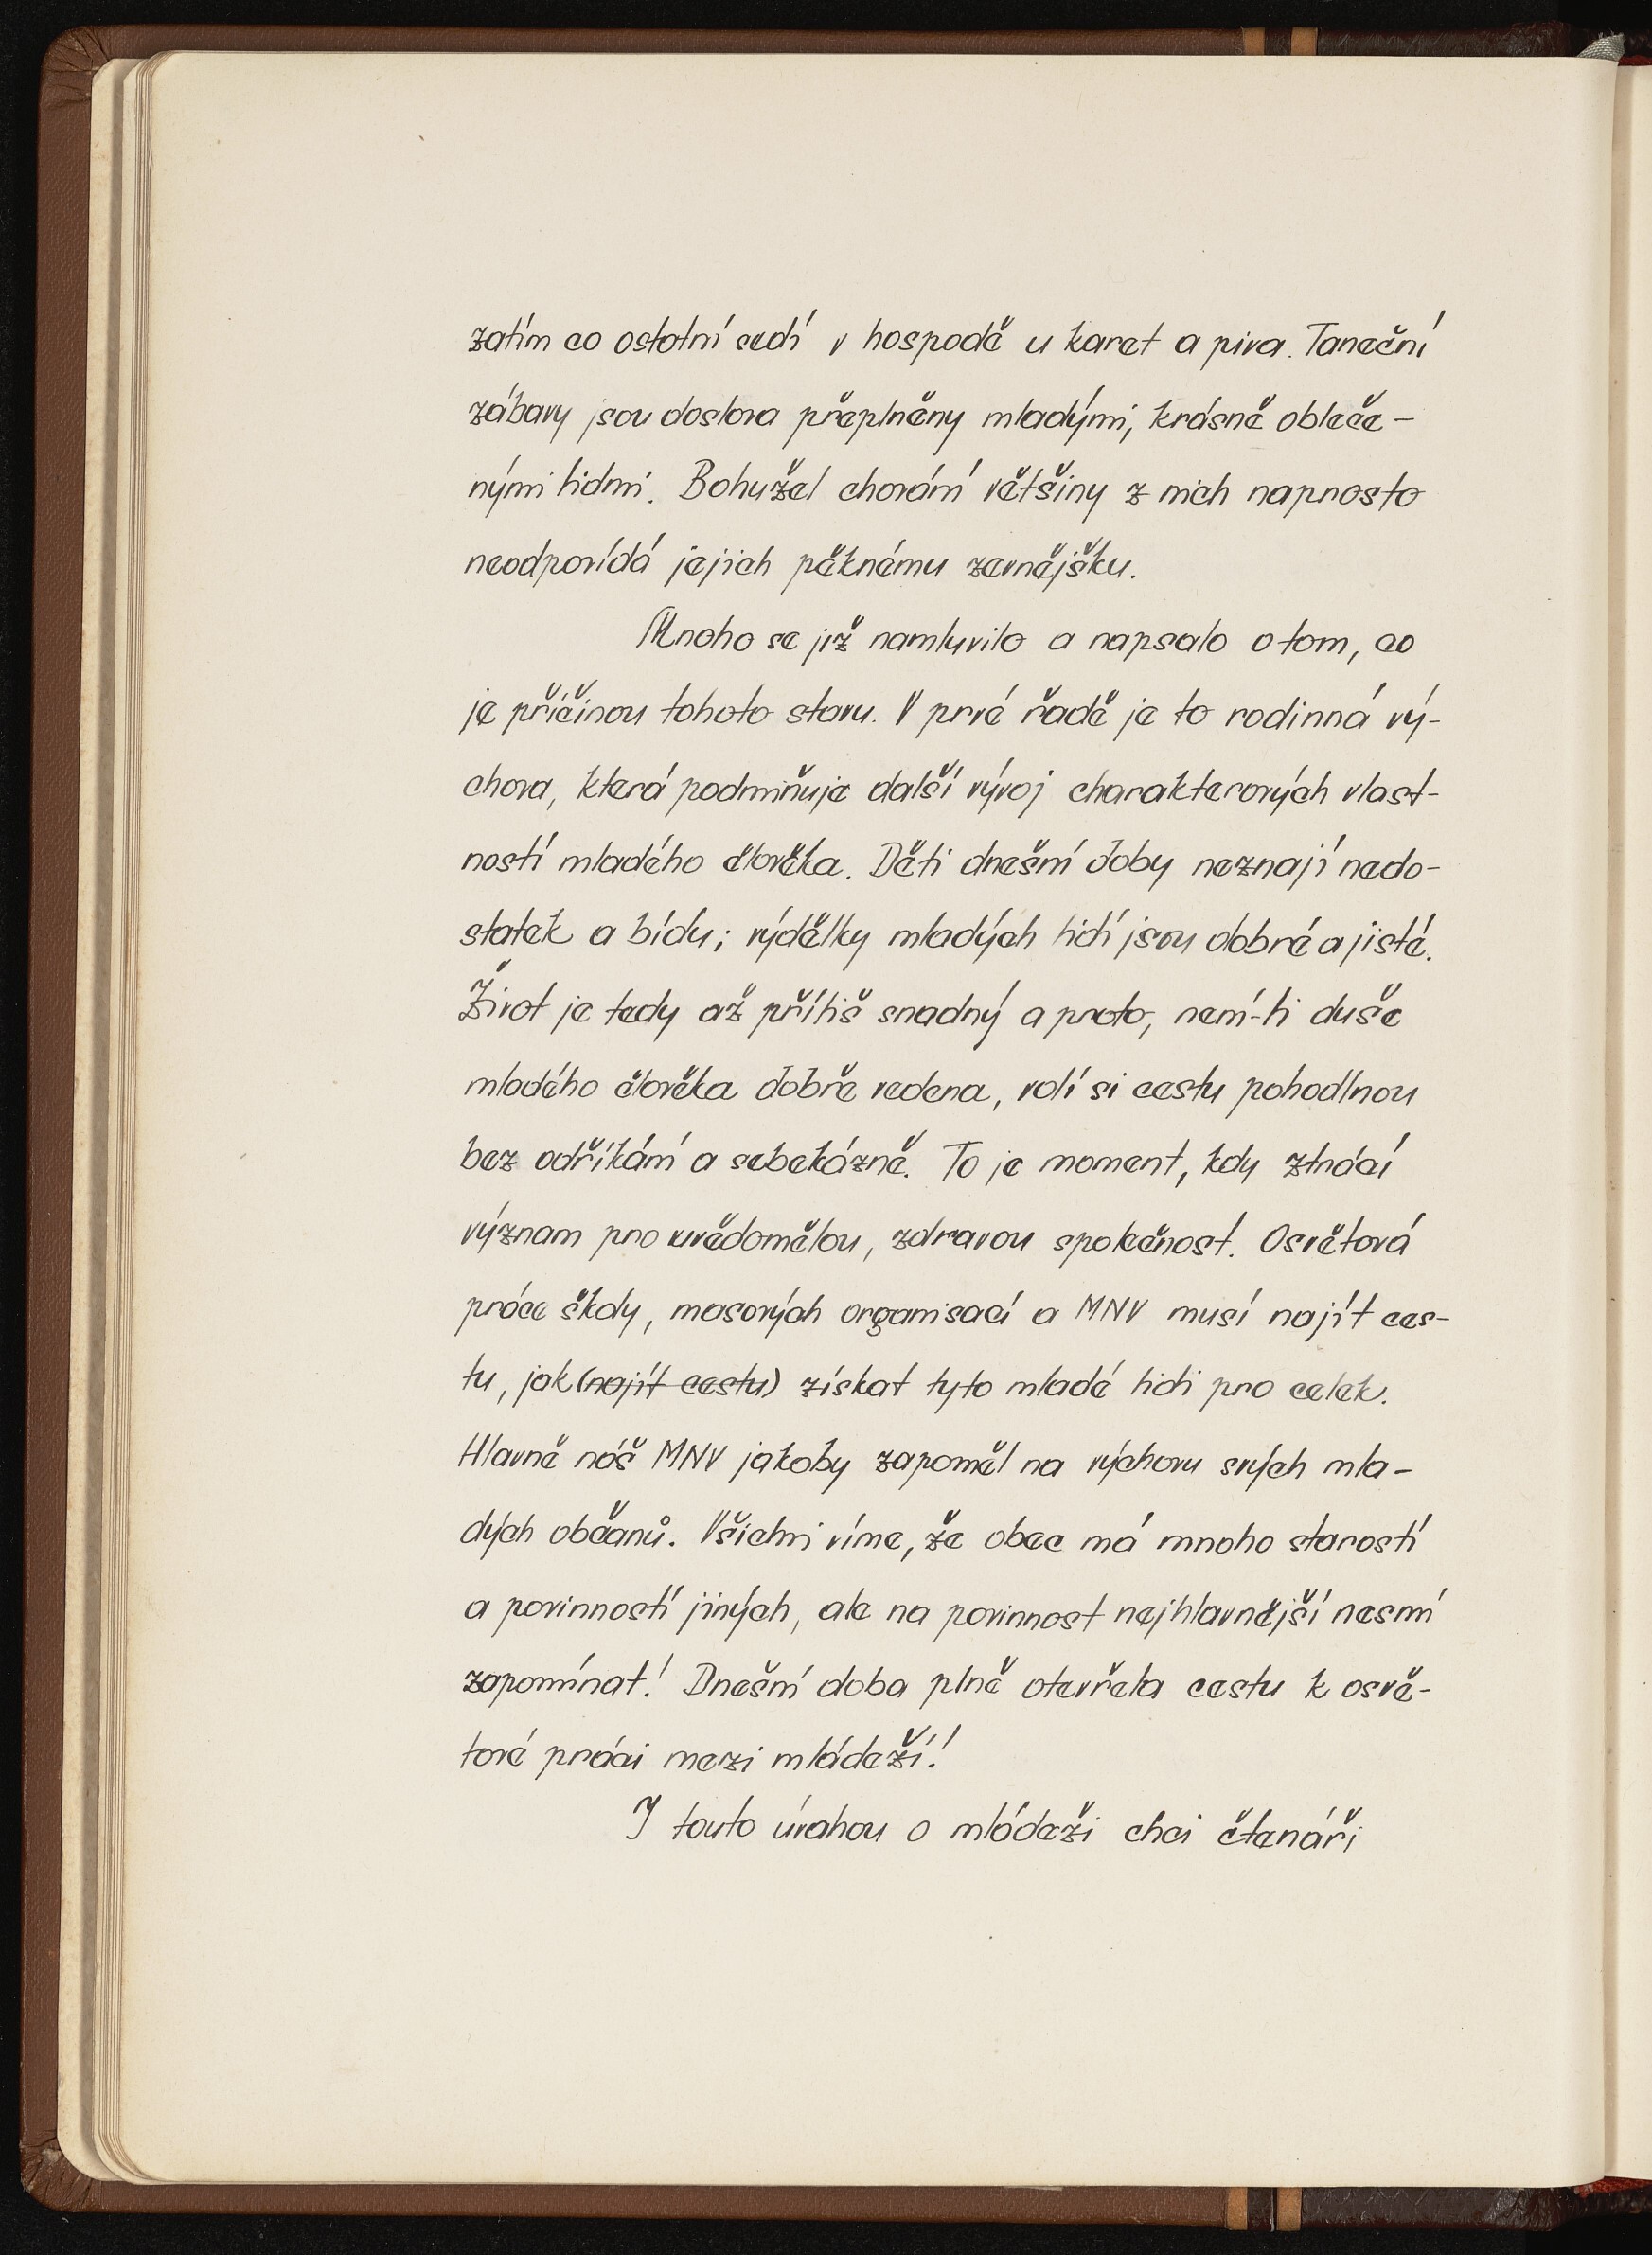 zatím co ostatní sedí v hospodě u karet a piva. Taneční
zábavy jsou doslova přeplněny mladými, krásně obleče-
nými lidmi. Bohužel chování většiny z nich naprosto
neodpovídá jejich pěknému zevnějšku.
Mnoho se již namluvilo a napsalo o tom, co
je příčinou tohoto stavu. V prvé řadě je to rodinná vý-
chova, která podmiňuje další vývoj charakterových vlast-
ností mladého člověka. Děti dnešní doby neznají nedo-
statek a bídu; výdělky mladých lidí jsou dobré a jisté.
Život je tedy až příliš snadný a proto, není-li duše
mladého člověka dobře vedena, volí si cestu pohodlnou
bez odříkání a sebekázně. To je moment, kdy ztrácí
význam pro uvědomělou, zdravou společnost. Osvětová
práce školy, masových organisací a MNV musí najít ces-
tu, jak (najít cestu) získat tyto mladé lidi pro celek.
Hlavně náš MNV jakoby zapoměl na výchovu svých mla-
dých občanů. Všichni víme, že obec má mnoho starostí
a povinností jiných, ale na povinnost nejhlavnější nesmí
zapomínat! Dnešní doba plně otevřela cestu k osvě-
tové práci mezi mládeží!
I touto úvahou o mládeži chci čtenáři